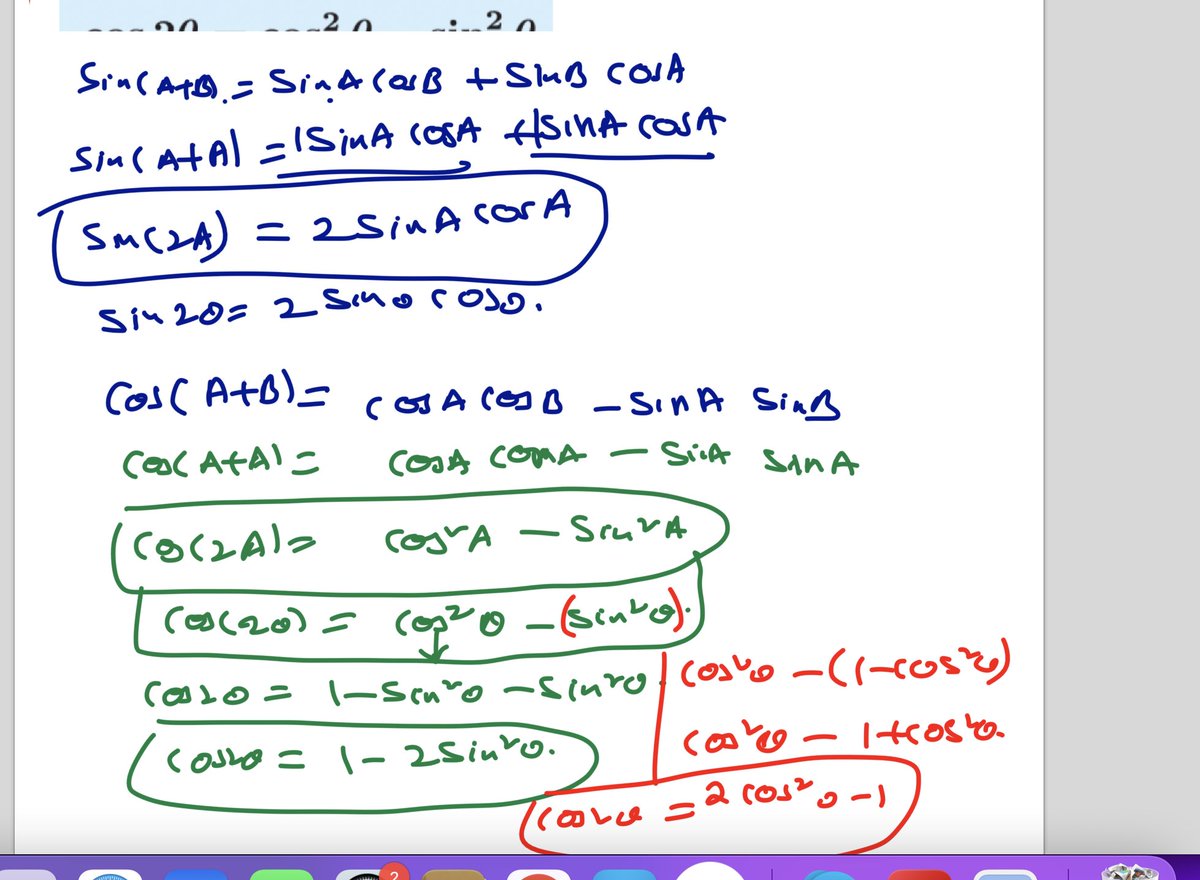 cos 2θ = cos² θ − sin² θ
Sin(A+B) = SinA CosB + SinB CosA
Sin(A+A) = 1SinA CosA + 1SinA CosA
Sin(2A) = 2SinA CosA
Sin2θ = 2 Sinθ Cosθ.
Cos(A+B) = CosA CosB − SinA SinB
Cos(A+A) = CosA CosA − SinA SinA
Cos(2A) = Cos²A − Sin²A
Cos(2θ) = Cos²θ − (Sin²θ).
Cos2θ = 1−Sin²θ − Sin²θ.
Cos2θ = 1 − 2Sin²θ.
Cos²θ − (1−Cos²θ)
Cos²θ − 1+Cos²θ.
Cos2θ = 2Cos²θ −1
2